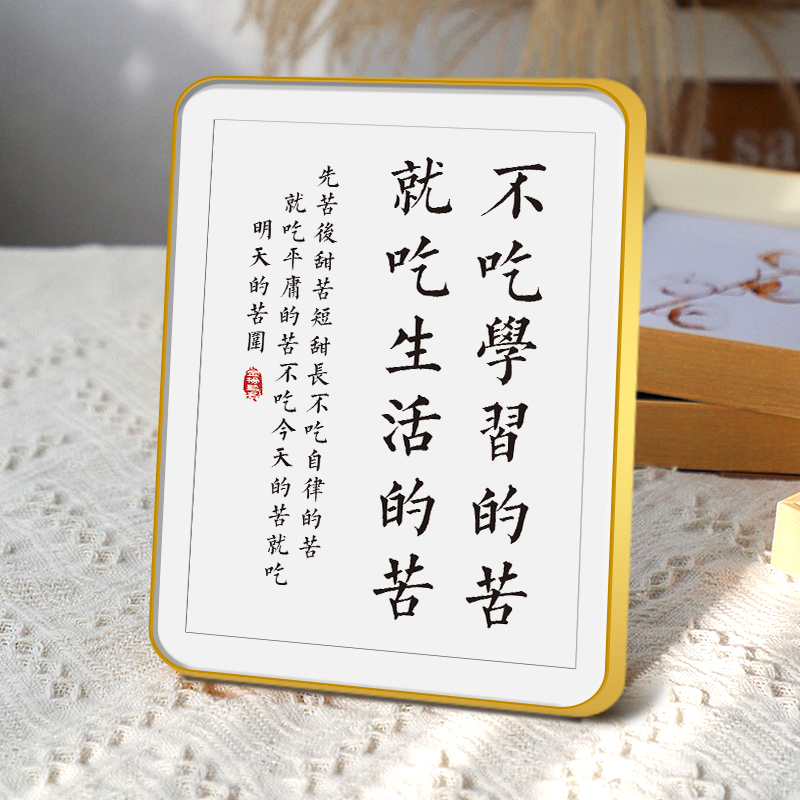 不吃學習的苦
就吃生活的苦
先苦後甜苦短甜長不吃自律的苦
就吃平庸的苦不吃今天的苦就吃
明天的苦圍